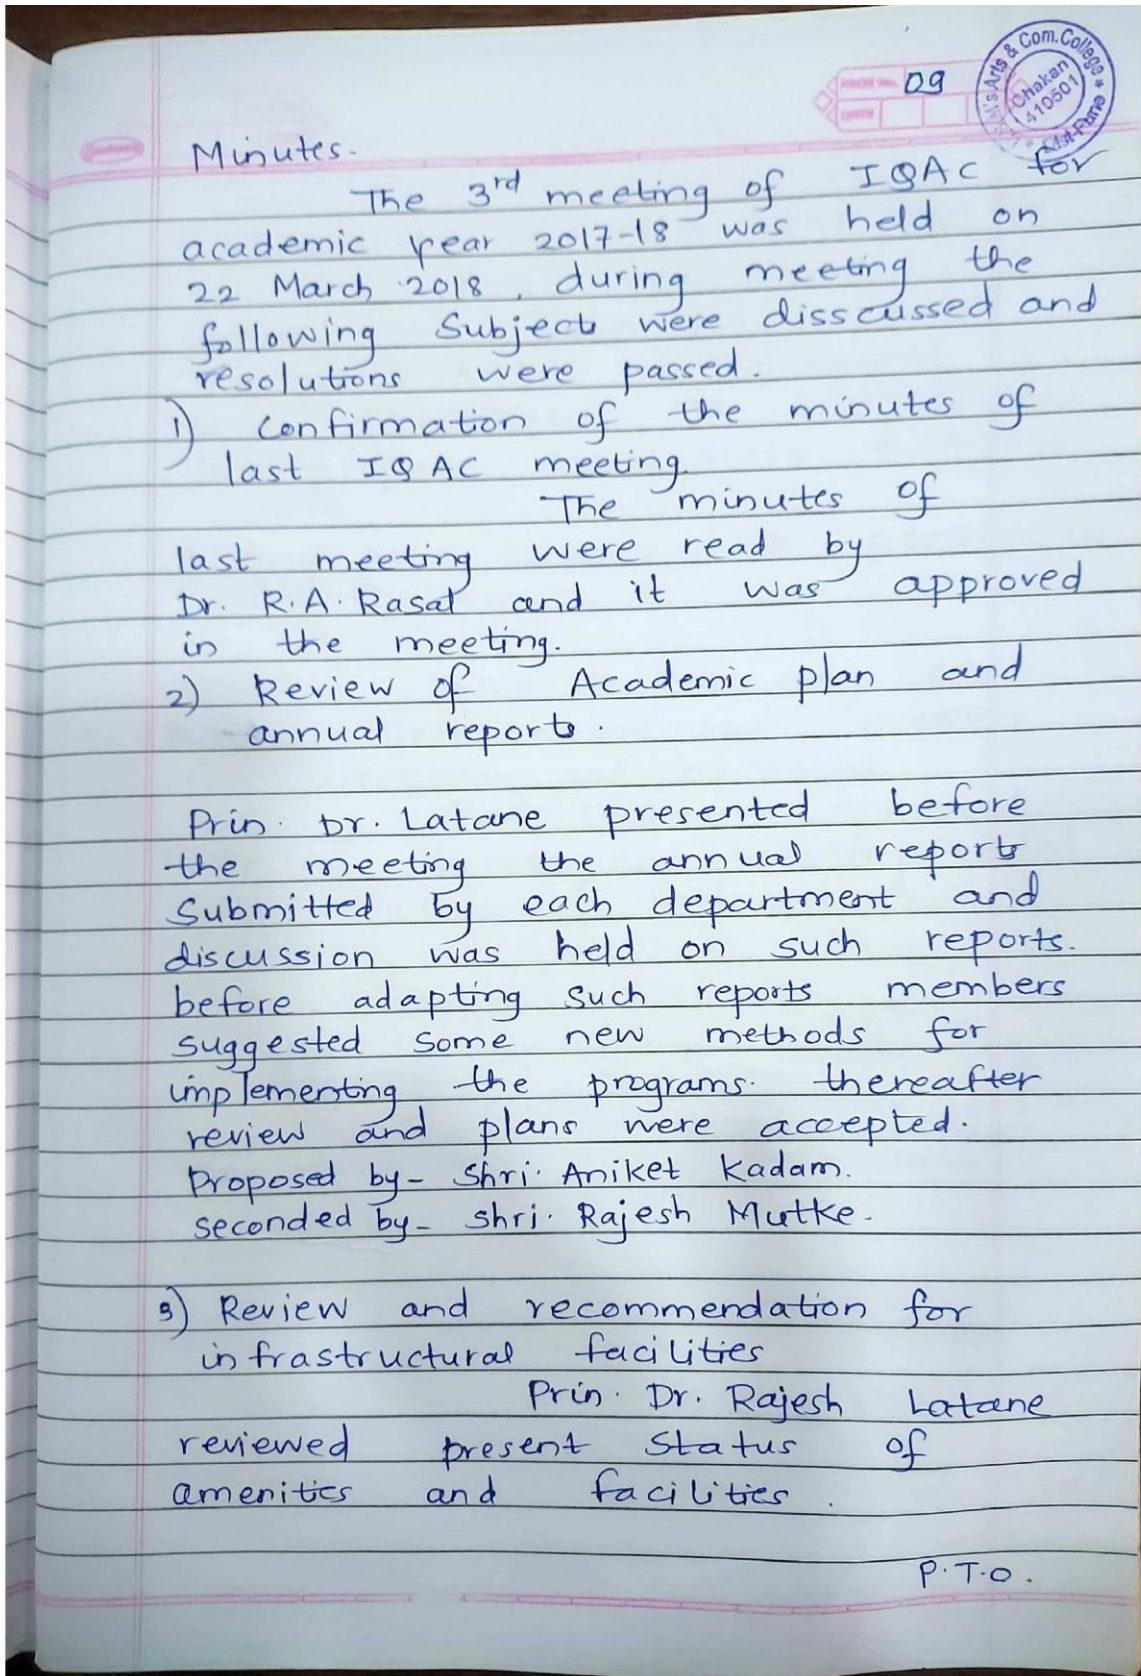 PAGE No. 09
DATE
Arts & Com. College
Chakan
410501
Minutes.
The 3rd meeting of IQAC for
academic year 2017-18 was held on
22 March 2018, during meeting the
following Subjects were disscussed and
resolutions were passed.
1) Confirmation of the minutes of
last IQAC meeting.
The minutes of
last meeting were read by
Dr. R.A. Rasal and it was approved
in the meeting.
2) Review of Academic plan and
annual reports.
Prin. Dr. Latane presented before
the meeting the annual reports
Submitted by each department and
discussion was held on such reports.
before adapting such reports members
suggested some new methods for
implementing the programs. thereafter
review and plans were accepted.
Proposed by- Shri. Aniket Kadam.
seconded by- Shri. Rajesh Mutke.
3) Review and recommendation for
infrastructural facilities
Prin. Dr. Rajesh Latane
reviewed present status of
amenities and facilities.
P.T.O.